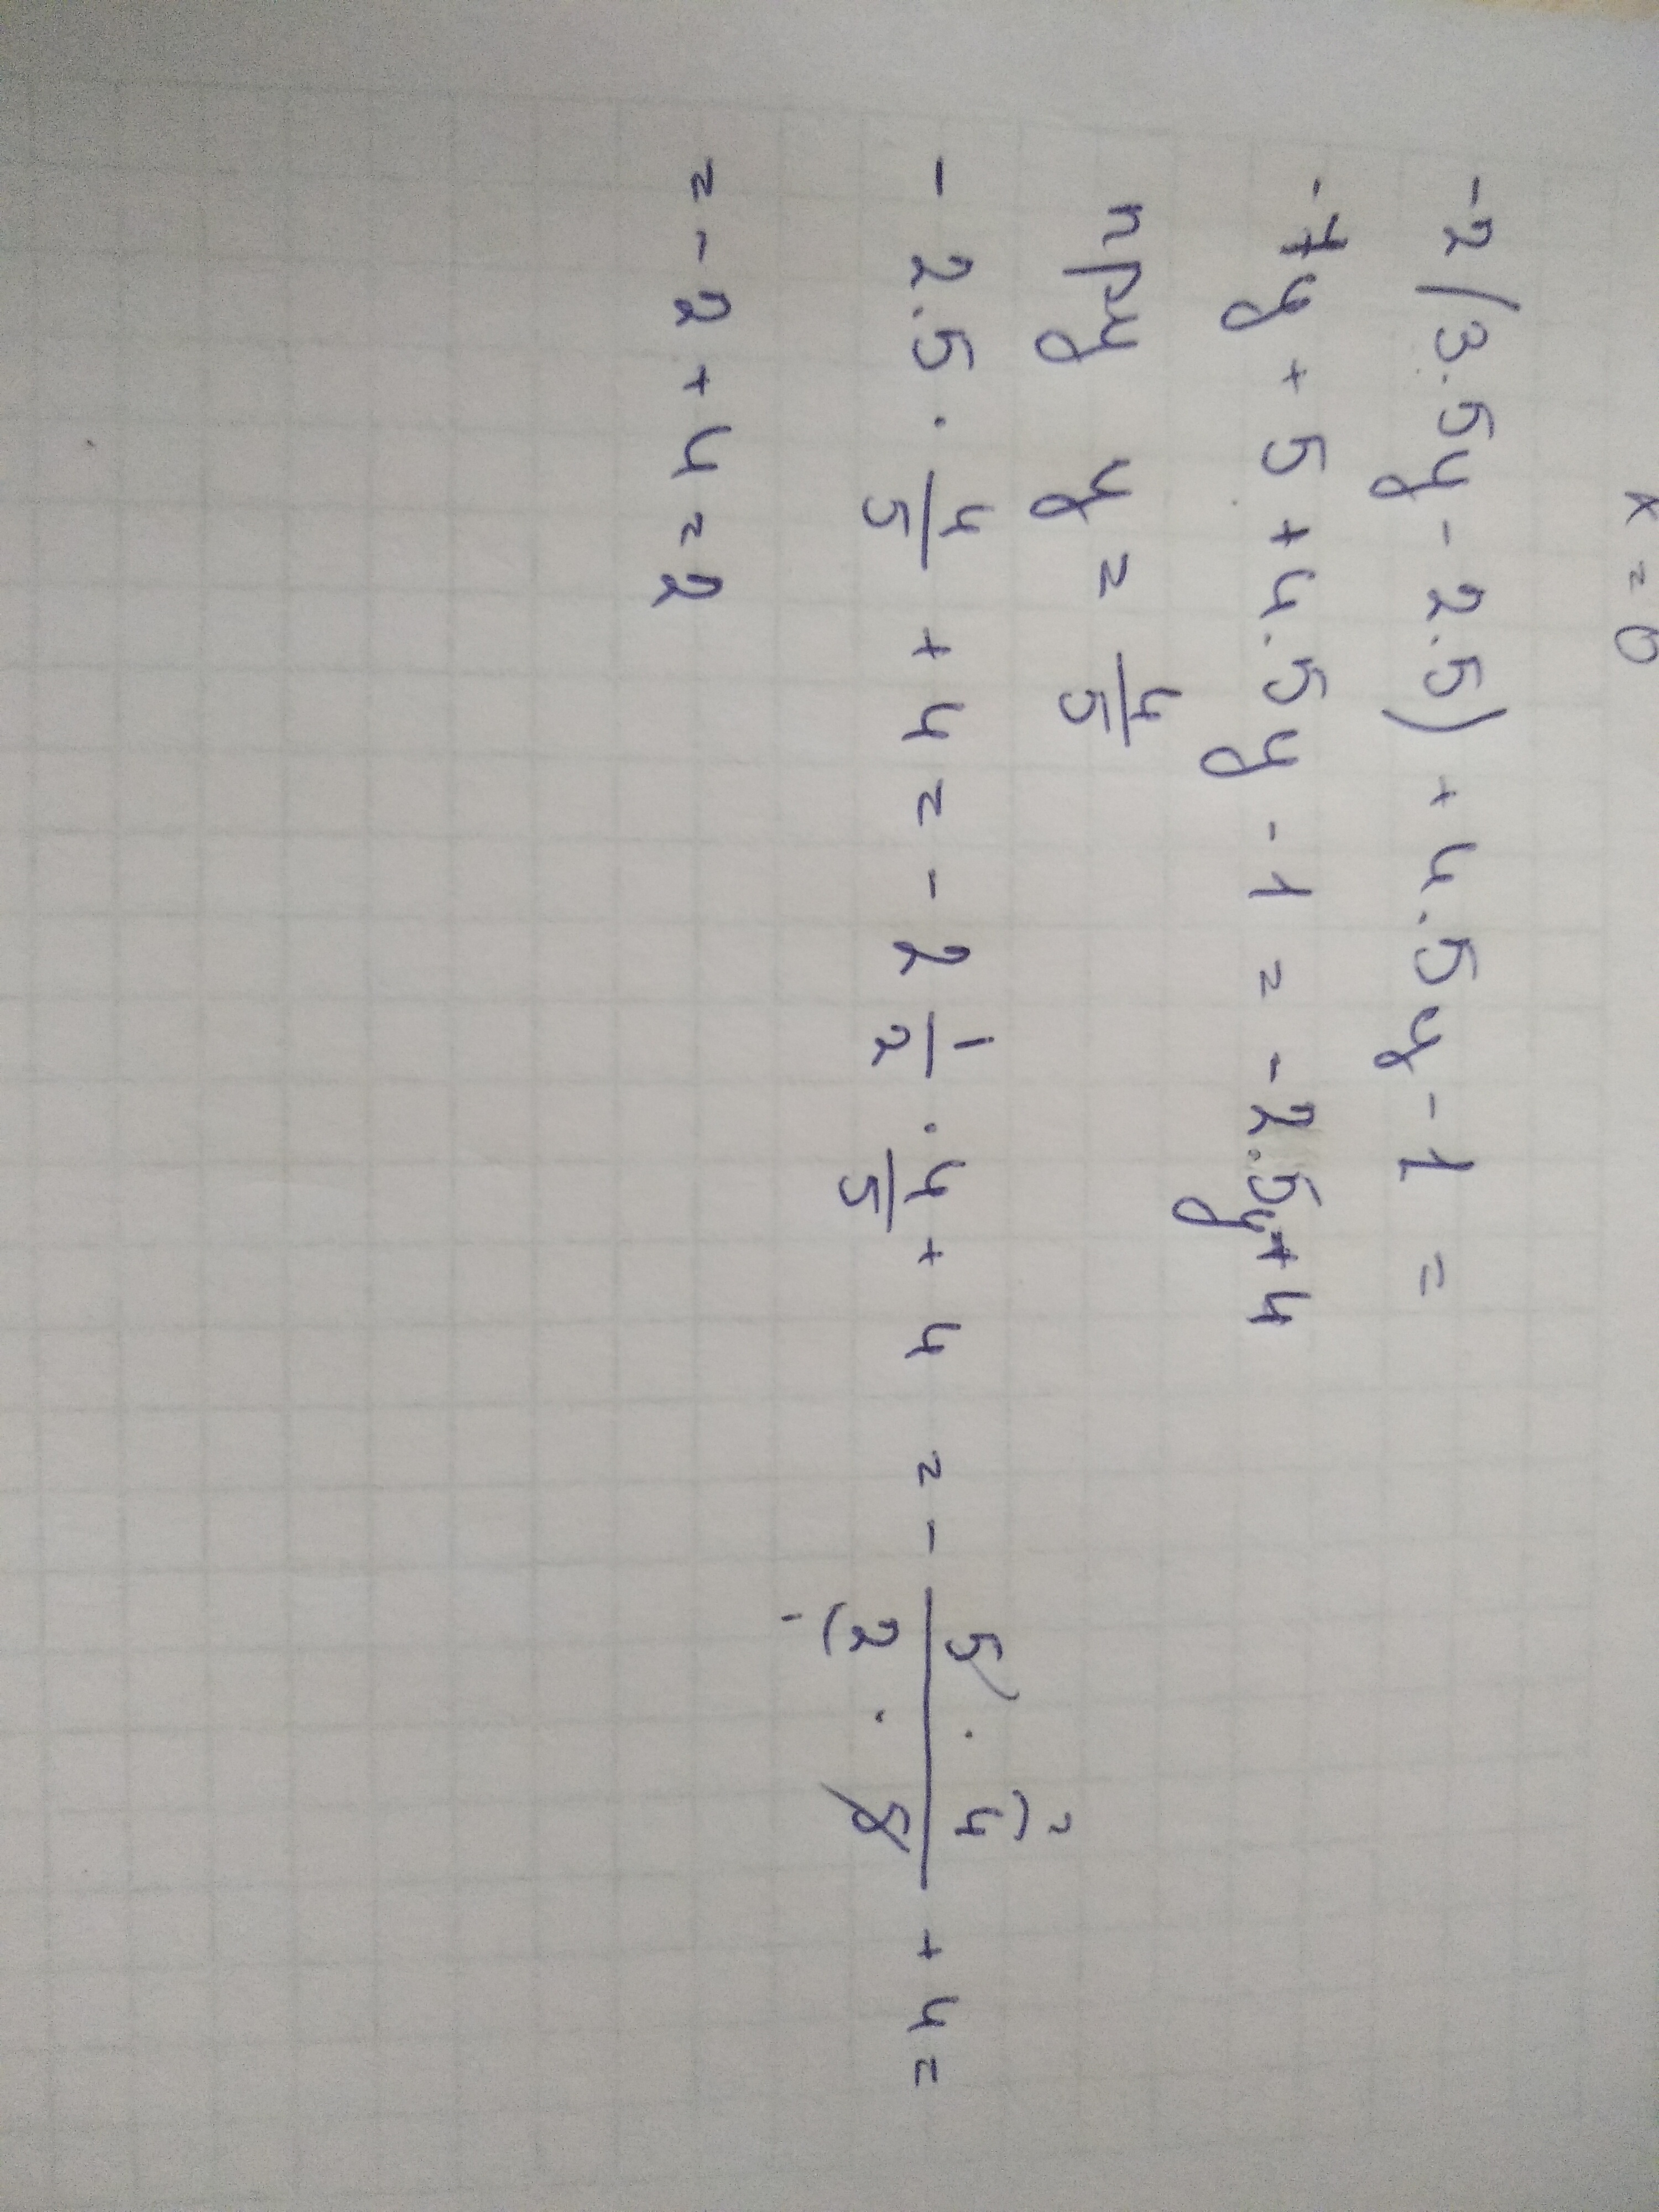 x = 0
-2(3.5y - 2.5) + 4.5y - 1 =
-7y + 5 + 4.5y - 1 = -2.5y + 4
при y = 4/5
- 2.5 · 4/5 + 4 = - 2 1/2 · 4/5 + 4 = - 5 · 4 / 2 · 5 + 4 =
= - 2 + 4 = 2